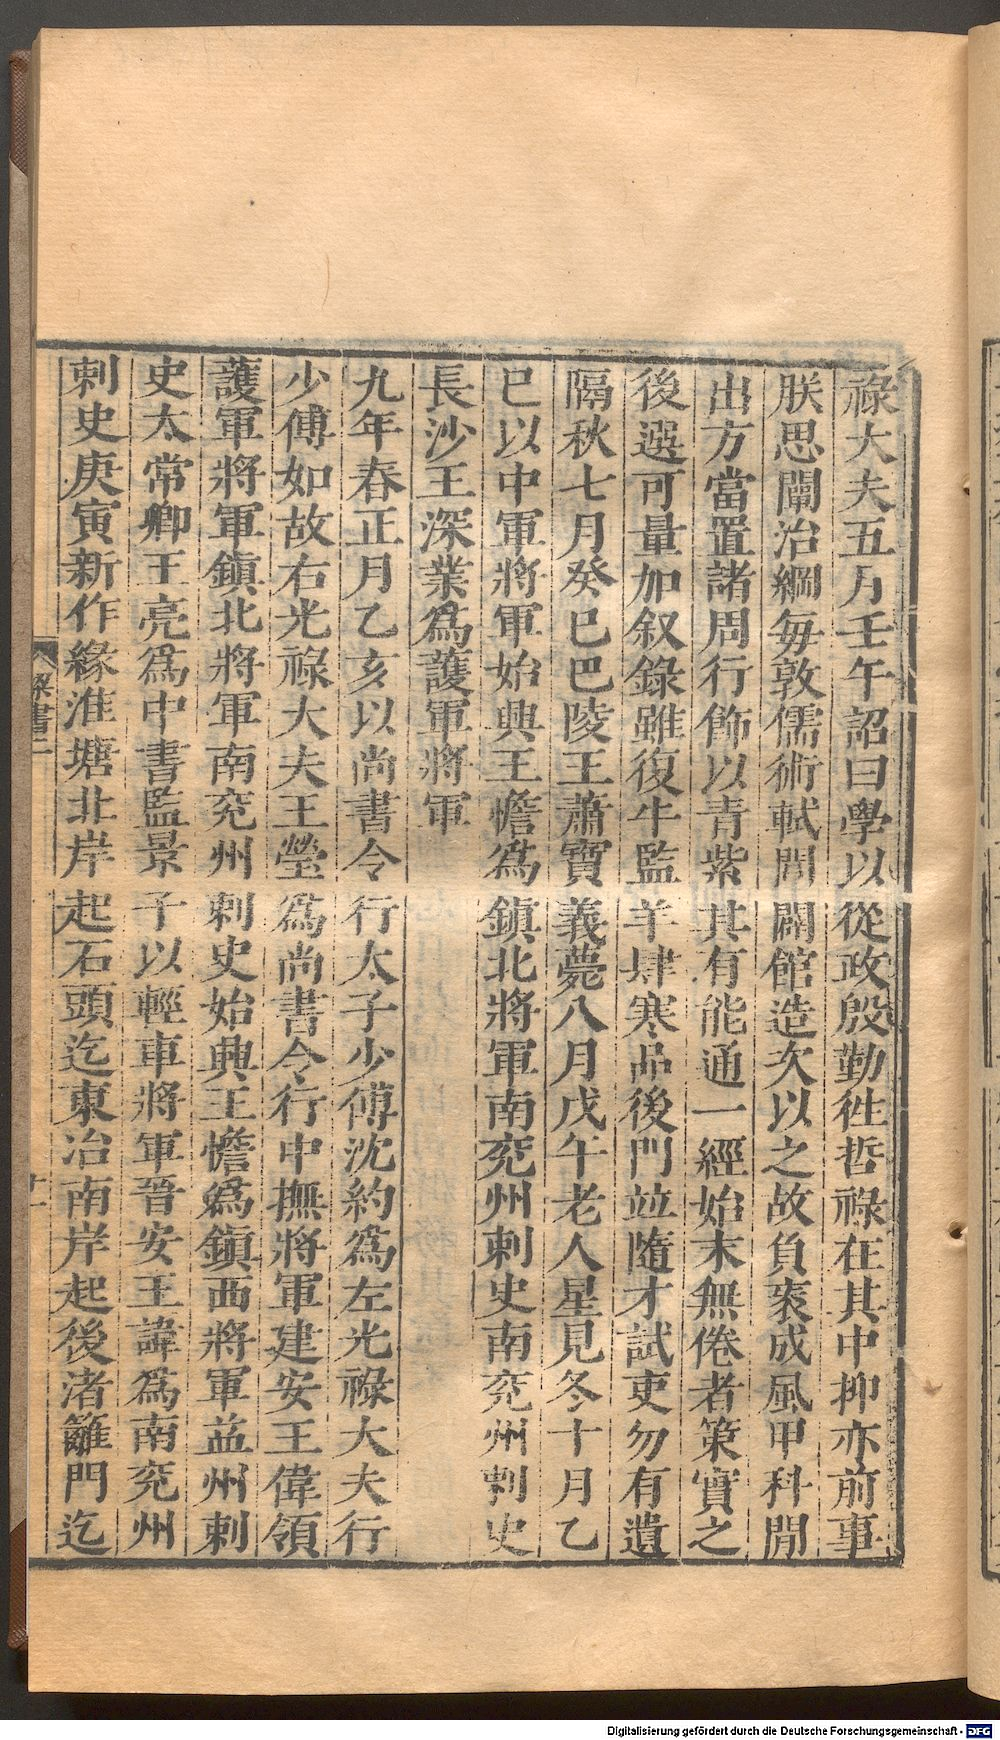 祿大夫五月壬午詔曰學以從政殷勤徃哲祿在其中抑亦前事
朕思闡治綱每敦儒術軾閭闢館造次以之故負袠成風甲科閒
出方當置諸周行飾以青紫其有能通一經始末無倦者策實之
後選可量加叙錄雖復牛監羊肆寒品後門竝隨才試吏勿有遺
隔秋七月癸巳巴陵王蕭寶義薨八月戊午老人星見冬十月乙
巳以中軍將軍始興王憺爲鎭北將軍南兖州刺史南兖州刺史
長沙王深業爲護軍將軍
九年春正月乙亥以尚書令行太子少傅沈約爲左光祿大夫行
少傅如故右光祿大夫王瑩爲尚書令行中撫將軍建安王偉領
護軍將軍鎭北將軍南兖州刺史始興王憺爲鎭西將軍益州刺
史太常卿王亮爲中書監景子以輕車將軍晉安王諱爲南兖州
刺史庚寅新作緣淮塘北岸起石頭迄東冶南岸起後渚籬門迄
梁書二
十一
Digitalisierung gefördert durch die Deutsche Forschungsgemeinschaft - DFG